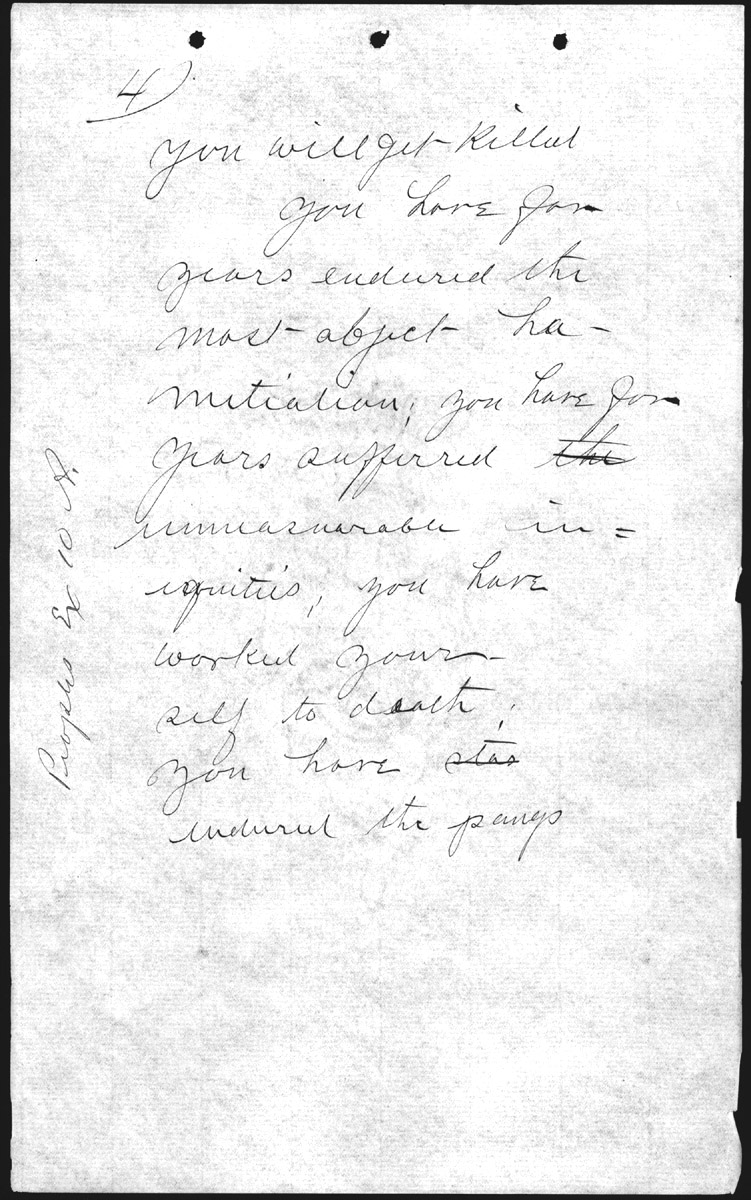 4)
you will get killed
you have for
years endured the
most abject hu-
miliation; you have for
years sufferred the
unmeasurable in=
iquities; you have
worked your-
self to death;
you have sta
endured the pangs
Peoples Ex 10 A.